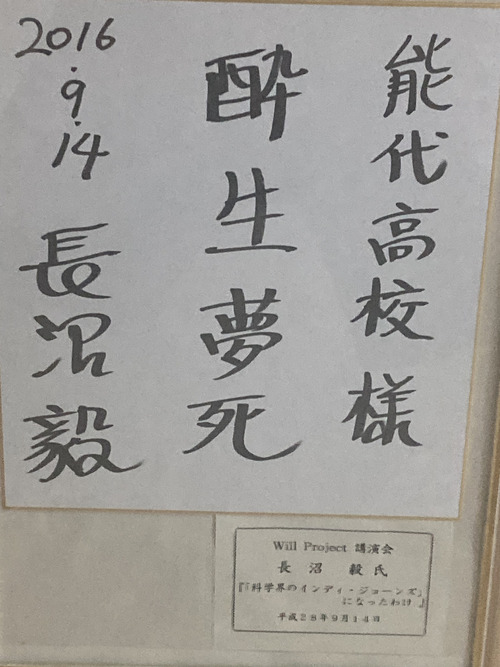 能代高校様
酔生夢死
2016.9.14 長沼毅
Will Project 講演会
長沼 毅氏
『「科学界のインディ・ジョーンズ」
になったわけ』
平成28年9月14日